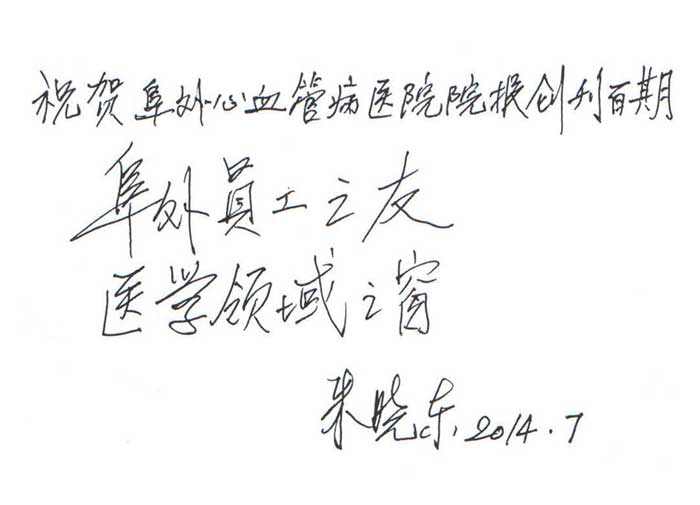 祝贺阜外心血管病医院院报创刊百期
阜外員工之友
医学领域之窗
朱晓东 2014.7